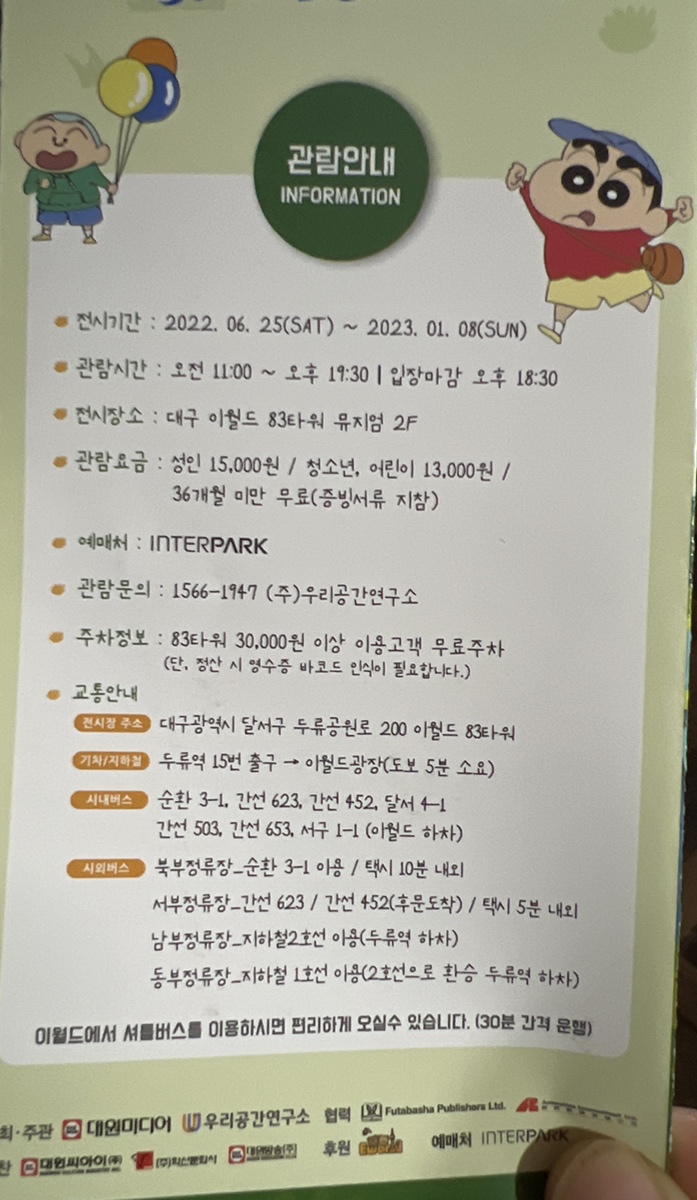 관람안내
INFORMATION
전시기간 : 2022. 06. 25(SAT) ~ 2023. 01. 08(SUN)
관람시간 : 오전 11:00 ~ 오후 19:30 | 입장마감 오후 18:30
전시장소 : 대구 이월드 83타워 뮤지엄 2F
관람요금 : 성인 15,000원 / 청소년, 어린이 13,000원 /
36개월 미만 무료(증빙서류 지참)
예매처 : INTERPARK
관람문의 : 1566-1947 (주)우리공간연구소
주차정보 : 83타워 30,000원 이상 이용고객 무료주차
(단, 정산 시 영수증 바코드 인식이 필요합니다.)
교통안내
전시장 주소 대구광역시 달서구 두류공원로 200 이월드 83타워
기차/지하철 두류역 15번 출구 → 이월드광장(도보 5분 소요)
시내버스 순환 3-1, 간선 623, 간선 452, 달서 4-1
간선 503, 간선 653, 서구 1-1 (이월드 하차)
시외버스 북부정류장_순환 3-1 이용 / 택시 10분 내외
서부정류장_간선 623 / 간선 452(후문도착) / 택시 5분 내외
남부정류장_지하철2호선 이용(두류역 하차)
동부정류장_지하철 1호선 이용(2호선으로 환승 두류역 하차)
이월드에서 셔틀버스를 이용하시면 편리하게 오실수 있습니다. (30분 간격 운행)
최·주관 대원미디어 우리공간연구소 협력 Futabasha Publishers Ltd.
찬 대원씨아이(주) 대원방송(주) 후원 EWORLD 예매처 INTERPARK